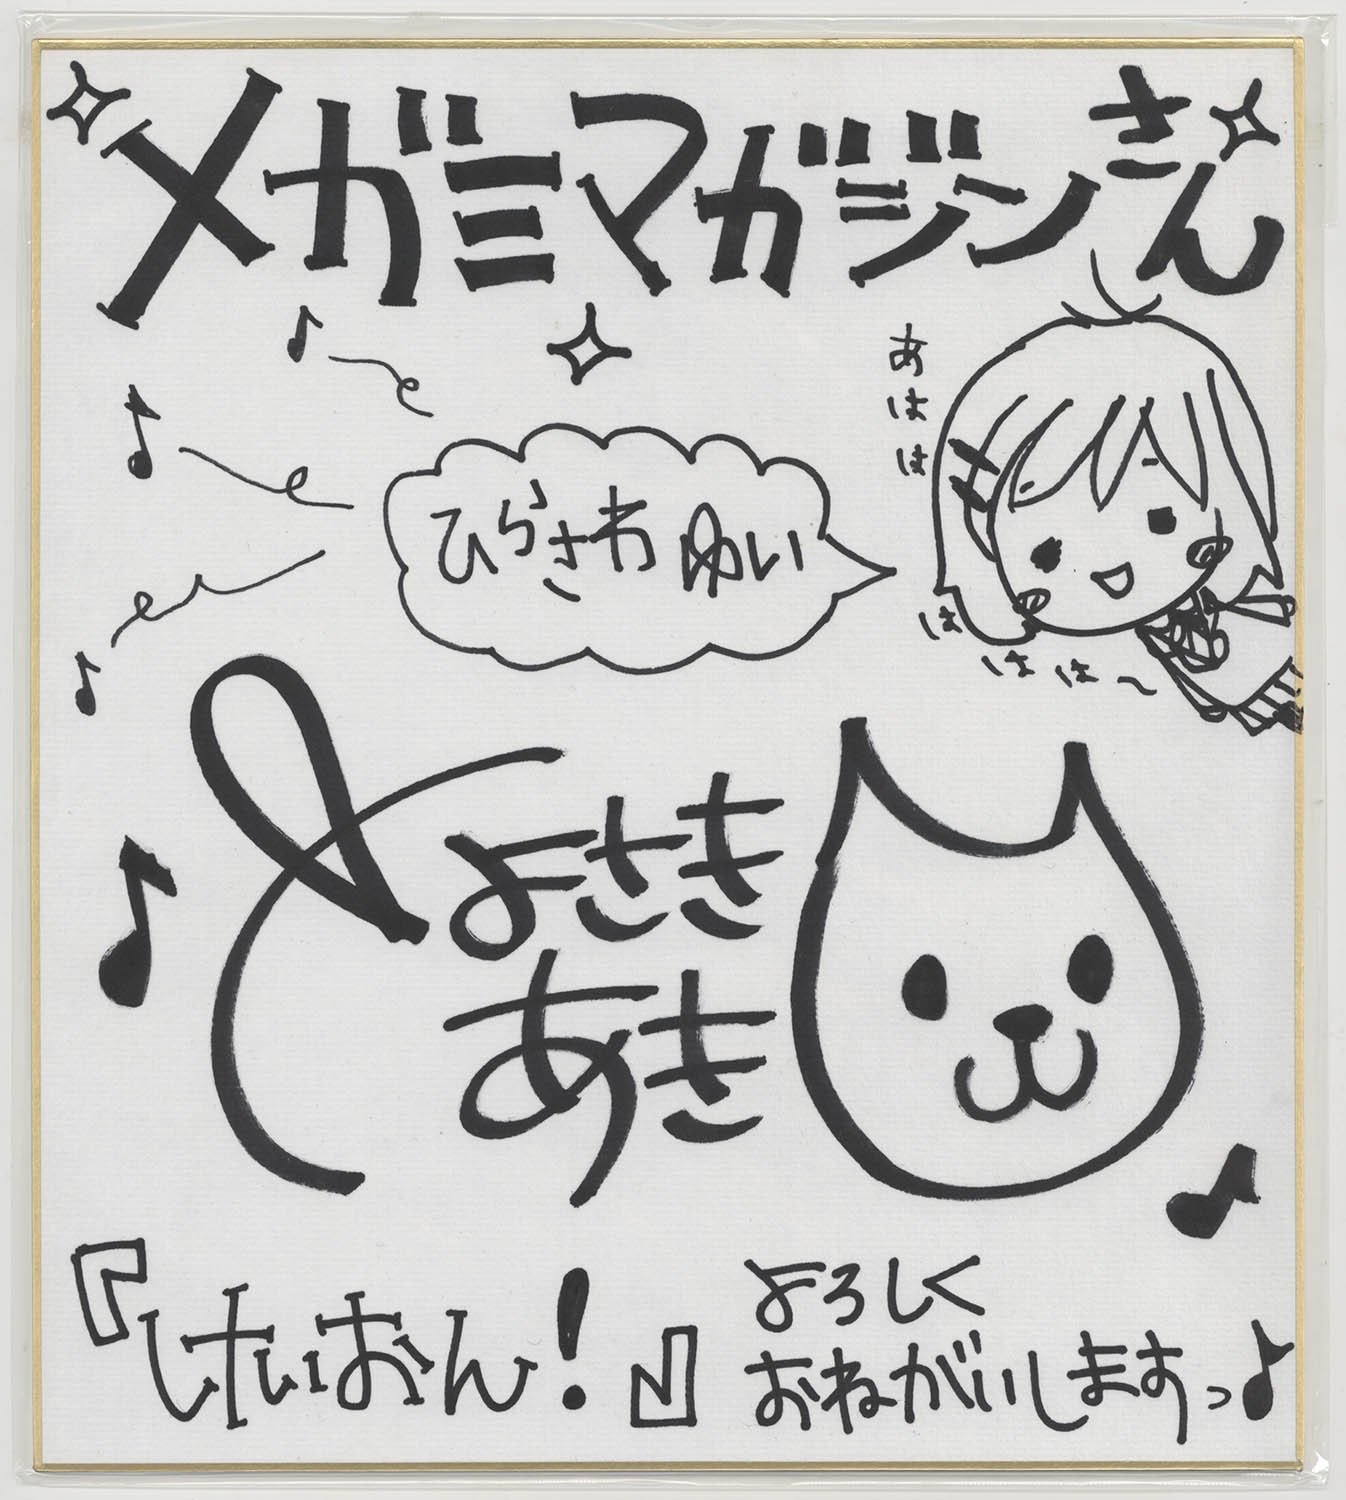 メガミマガジンさん
あはは
ひらさわ ゆい
はははは~
とよさき
あき
『けいおん!』
よろしく
おねがいしますっ♪